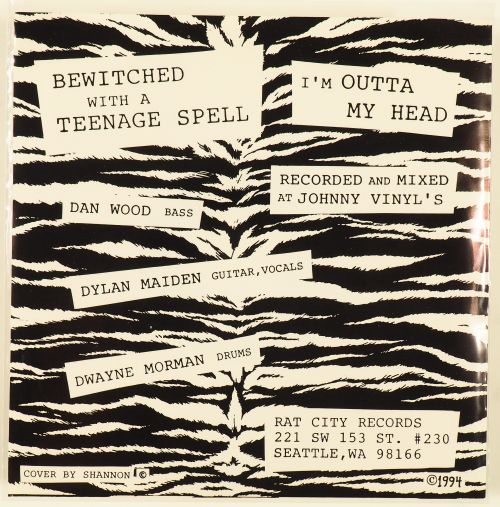 BEWITCHED
WITH A
TEENAGE SPELL
I'M OUTTA
MY HEAD
RECORDED AND MIXED
AT JOHNNY VINYL'S
DAN WOOD BASS
DYLAN MAIDEN GUITAR,VOCALS
DWAYNE MORMAN DRUMS
RAT CITY RECORDS
221 SW 153 ST. #230
SEATTLE,WA 98166
COVER BY SHANNON ©
©1994